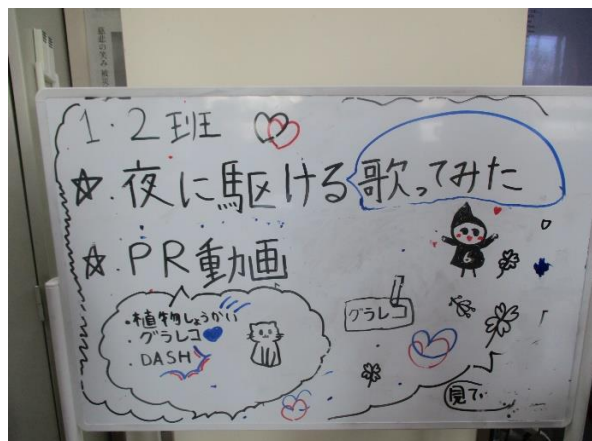 1・2班
☆・夜に駆ける歌ってみた
☆・PR動画
・植物しょうかい
・グラレコ
・DASH
グラレコ
見て